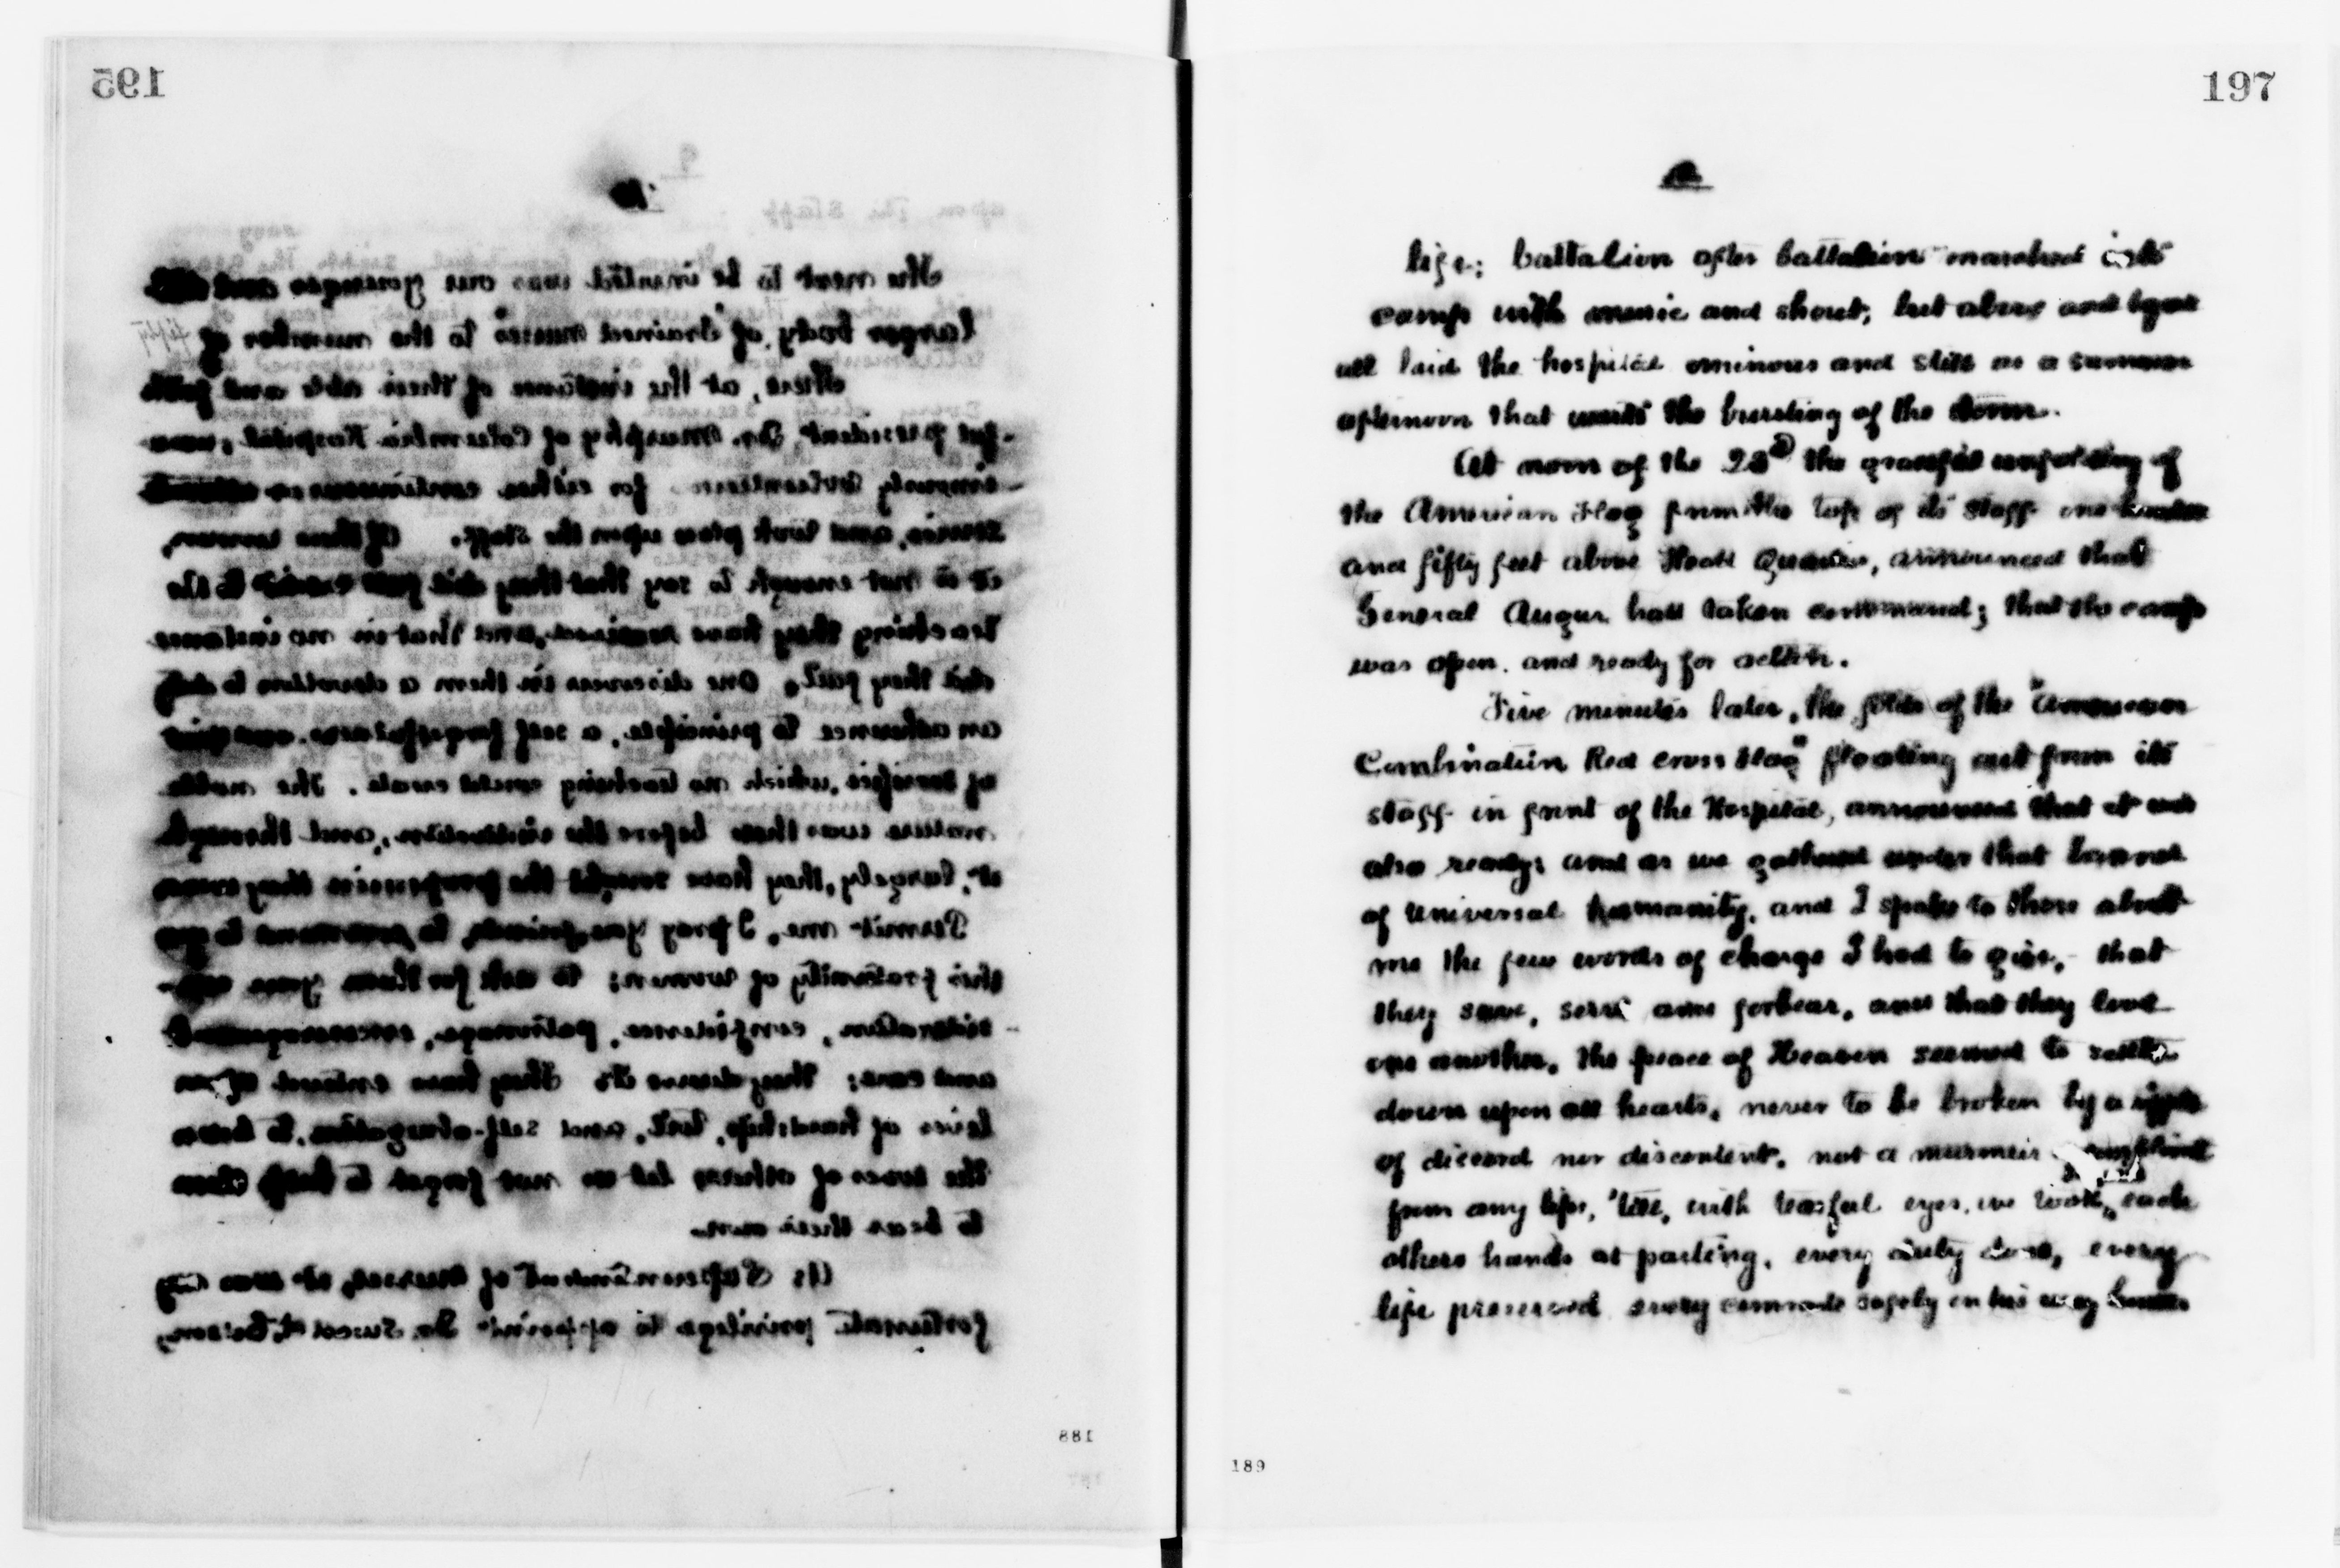 195
The next to be invited was our younger and
larger body of trained nurses to the number of
fifty
others, at the instance of their able and faith
-ful president, Dr. Murphy of Columbia Hospital, were
service, and took place upon the staff. Of these women,
it is not enough to say that they did full credit to the
teaching they have received, and that in no instance
did they fail. One discovers in them a devotion to duty
an adherence to principle, a self forgetfulness and
of sacrifice, which no teaching could create. The noble
nature was there before the institution, and through
it, largely, they have sought the
Permit me, I pray you, friends, to
this fraternity of women; to ask for them your
-sideration, confidence, patronage, encouragement
and care; they deserve it. They have entered upon
lives of hardship, toil, and self-abnegation, to bear
the woes of others; let us not forget to help them
to bear their own.
As Superintendent of nurses, it was my
fortunate privilege to appoint Dr.
188
197
life; battalion after battalion marched into
camp with music and shout, but above and
all laid the hospital ominous and still as a summer
afternoon that waits the bursting of the storm.
At noon of the 23d the graceful unfolding of
the American Flag from the top of its staff one hundred
and fifty feet above Head Quarters, announced that
General Augur had taken command; that the camp
was open and ready for action.
Five minutes later, the folds of the "American
Combination Red Cross Flag" floating out from its
staff in front of the Hospital, announced that it was
also ready; and as we gathered under that banner
of universal humanity, and I spoke to those about
me the few words of charge I had to give, - that
they save, serve and forbear, and that they love
one another, the peace of Heaven seemed to settle
down upon all hearts, never to be broken by a ripple
of discord nor discontent, not a murmur
from any lips, 'till, with tearful eyes, we took each
others hands at parting, every duty done, every
life preserved every comrade safely on his way home.
189